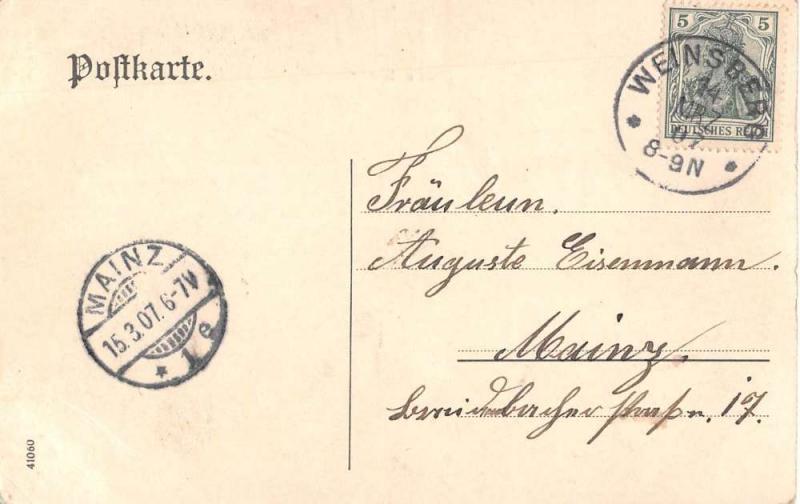 Postkarte.
5 5
DEUTSCHES REICH
WEINSBERG
14
MRZ
07
8-9N
Fräulein.
Auguste Eisenmann.
Mainz.
breidenbacherstrasse. 17.
MAINZ
15.3.07.6-7V
* 1 e
41060